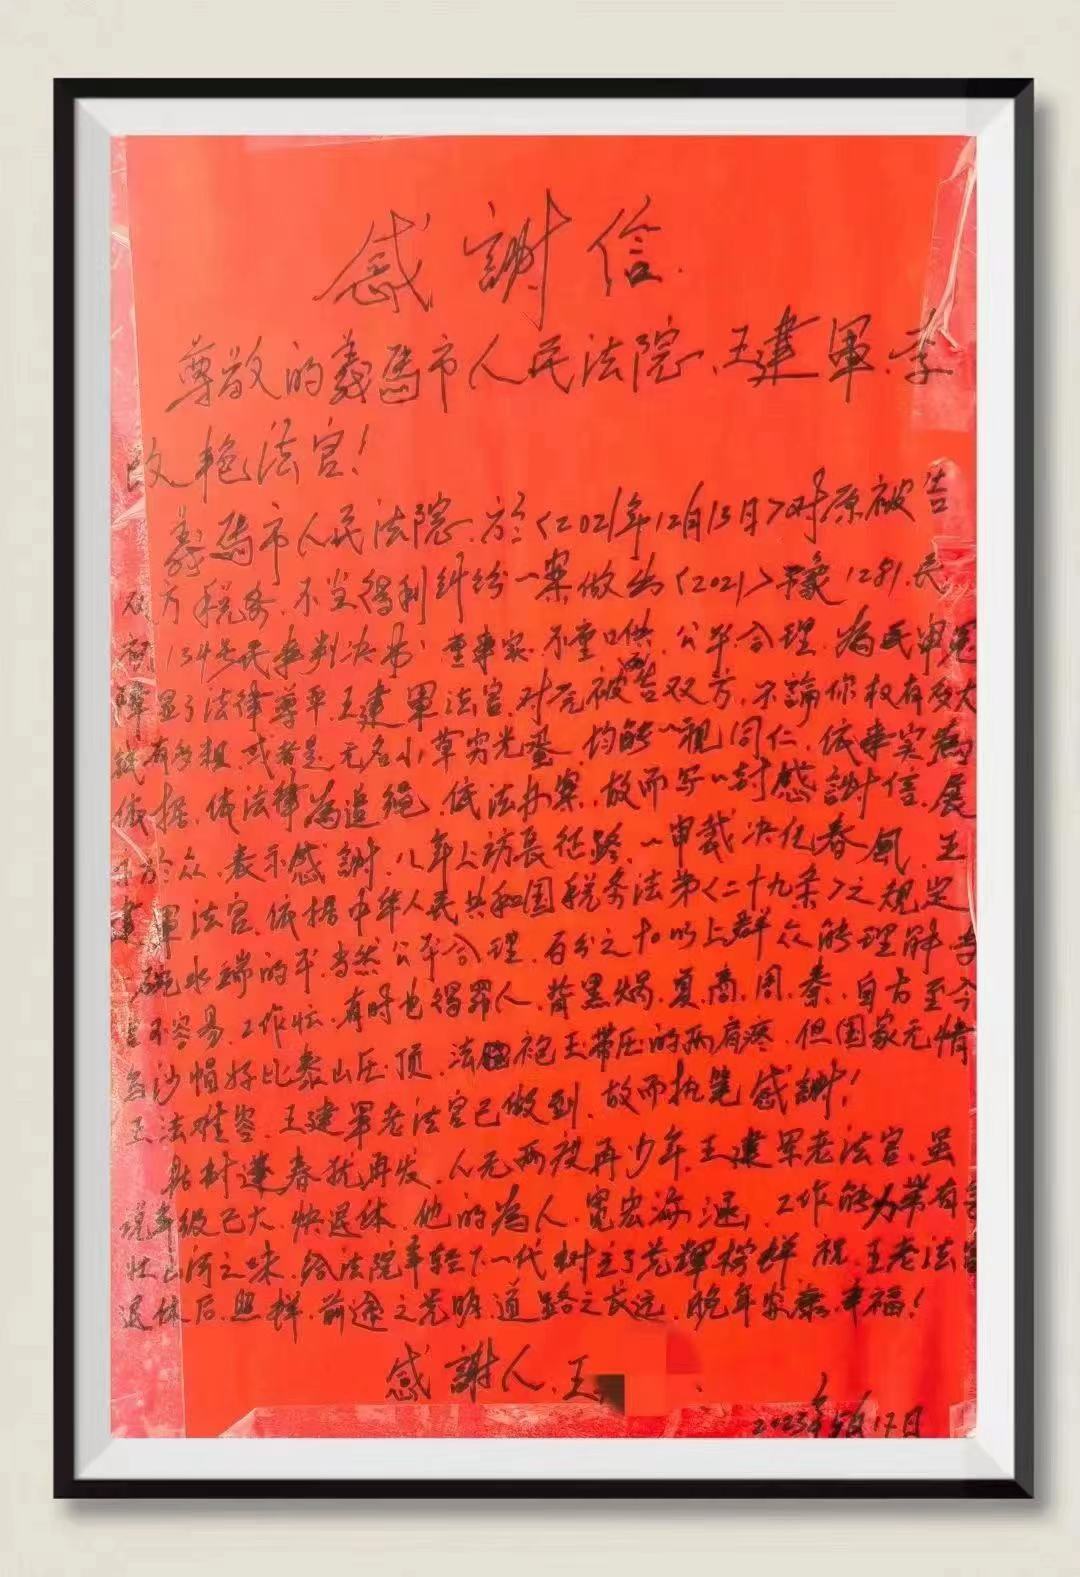 感謝信
尊敬的義馬市人民法院、王建軍、李
改艳法官！
義馬市人民法院、於<2021年12月15日>对原被告
双方税务、不当得利纠纷一案做出<2021>豫1281、民
初、1348号民事判决书、重事实、不重口供、公平合理、為民申冤
彰显了法律尊严、王建軍法官、对元被告双方、不論你权有多大
錢有多粗、或者是无名小草穷光蛋、均能一視同仁、依事实為
依据、依法律為道绳、依法办案、故而写一封感謝信、展
示於众、表示感謝、八年上訪長征路、一申裁决化春風、王
建軍法官、依据中华人民共和国税务法第<二十九条>之規定
一碗水端的平、当然公平合理、百分之十0以上群众能理解、法
官不容易、工作忙、有时也得罪人、背黑煱、夏、商、周、秦、自古至今
烏沙帽好比泰山压頂、法袍玉带压的两肩疼、但国家无情
王法难容、王建軍老法官已做到、故而执笔感謝！
枯树逢春犹再发、人无两度再少年、王建軍老法官、虽
说年级已大、快退休、他的為人、寬宏海涵、工作能力带有
壮山河之味、給法院年轻下一代树立了光輝榜样、祝、王老法官
退休后、照样、前途之光明、道路之长远、晚年安康、幸福！
感謝人、王
2023年5月17日